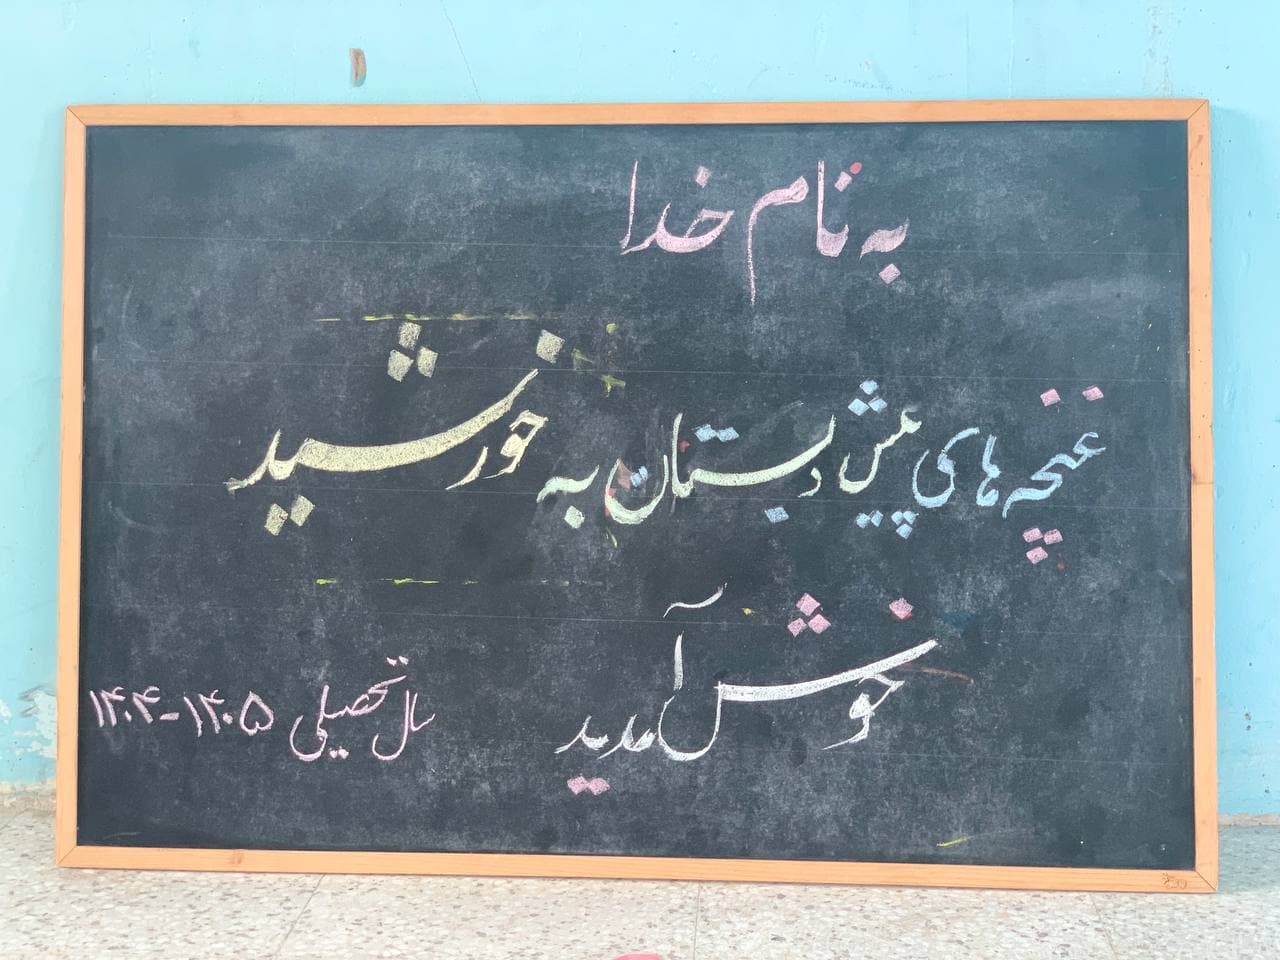 به نام خدا
غنچه های پیش دبستان به خورشید
خوش آمدید
سال تحصیلی ۱۴۰۵-۱۴۰۴